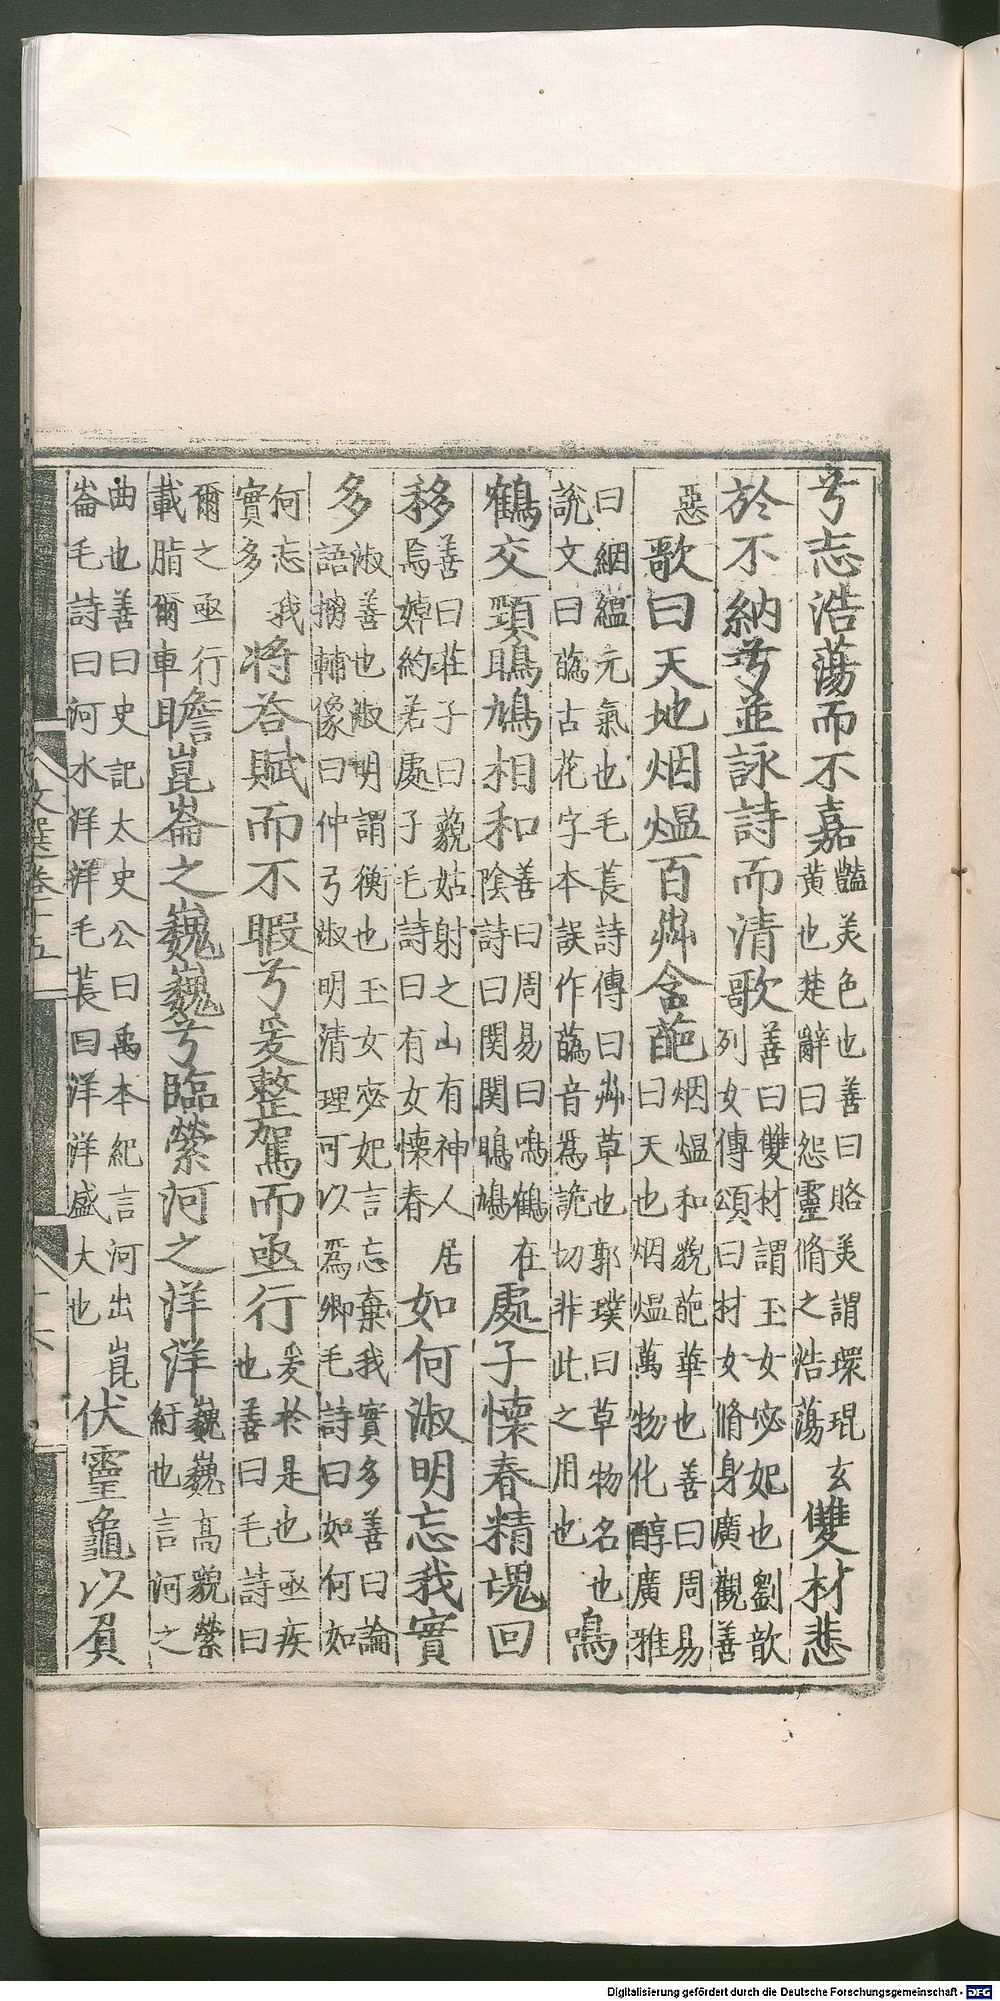 兮志浩蕩而不嘉豔美色也善曰賂美謂環琨玄黃也楚辭曰怨靈脩之浩蕩雙材悲
於不納兮並詠詩而清歌善曰雙材謂玉女宓妃也劉歆列女傳頌曰材女脩身廣觀善
惡歌曰天地烟熅百卉含葩烟熅和貌葩華也善曰周易曰天地烟熅萬物化醇廣雅
曰絪縕元氣也毛萇詩傳曰卉草也郭璞曰草物名也說文曰蘤古花字本誤作蘤音為詭切非此之用也鳴
鶴交頸鴡鳩相和善曰周易曰鳴鶴在陰詩曰関関鴡鳩處子懷春精魂回
移善曰莊子曰藐姑射之山有神人居焉婥約若處子毛詩曰有女懷春如何淑明忘我實
多淑善也淑明謂衡也玉女宓妃言忘棄我實多善曰論語摘輔像曰仲弓淑明清理可以爲卿毛詩曰如何如
何忘我實多將荅賦而不暇兮爰整駕而亟行爰於是也亟疾也善曰毛詩曰
爾之亟行載脂爾車瞻崑崙之巍巍兮臨縈河之洋洋巍巍高貌縈紆也言河之
曲也善曰史記太史公曰禹本紀言河出崑崙毛詩曰河水洋洋毛萇曰洋洋盛大也伏靈龜以負
文選卷十五
十六
Digitalisierung gefördert durch die Deutsche Forschungsgemeinschaft - DFG